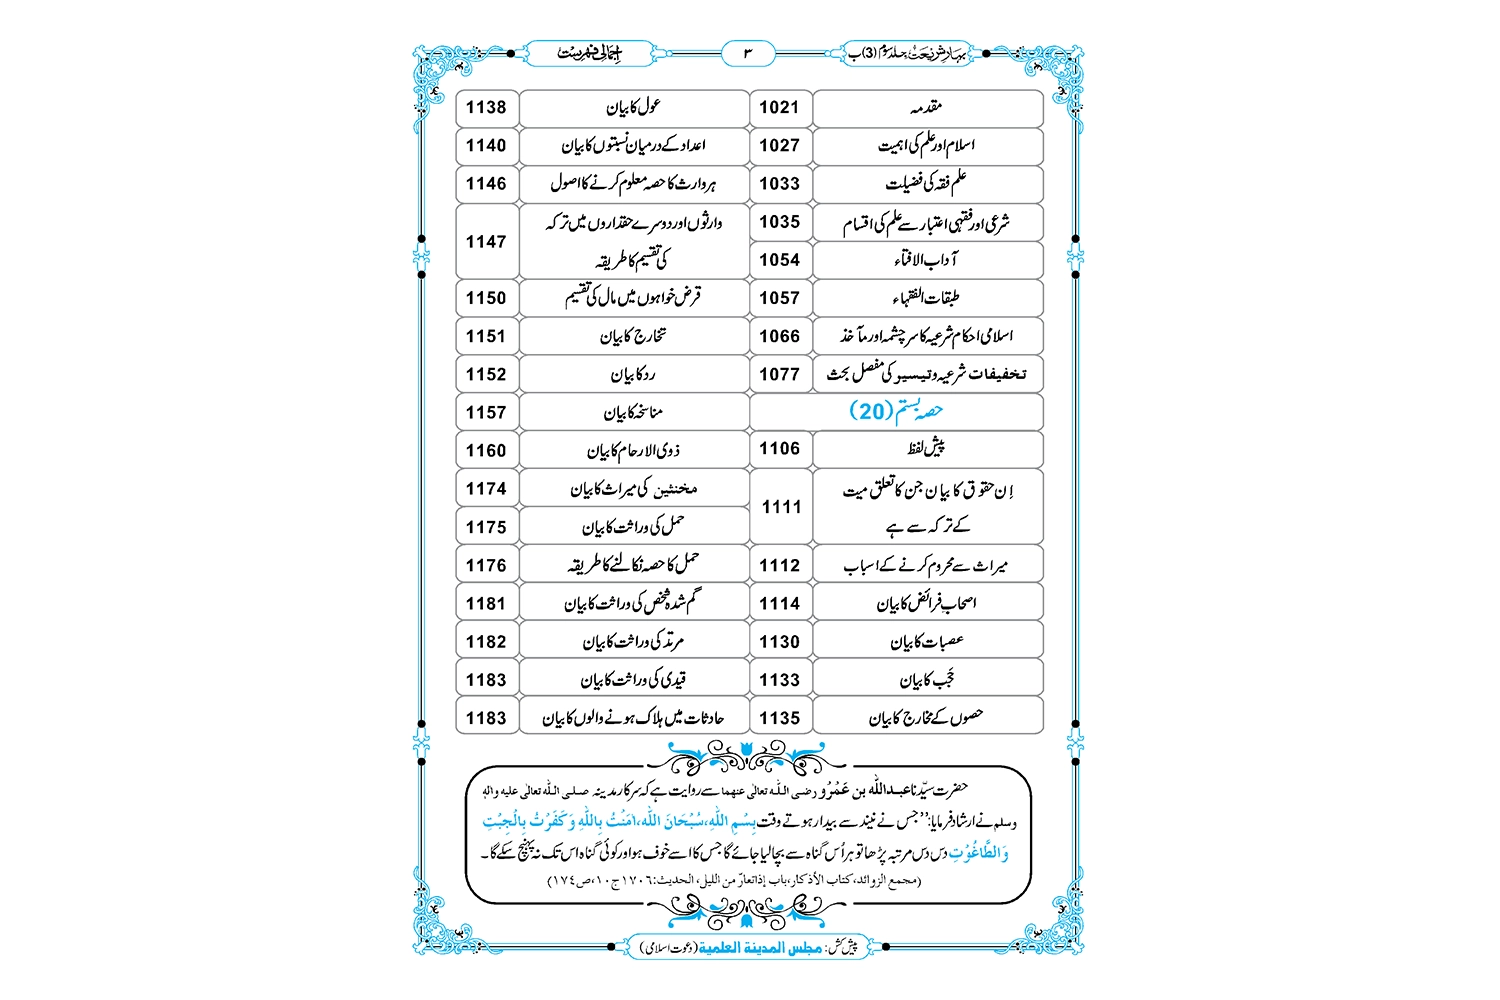 بہارشریعت جلد سوم (3) ب
۳
اجمالی فہرست
مقدمہ 1021
اسلام اور علم کی اہمیت 1027
علم فقہ کی فضیلت 1033
شرعی اور فقہی اعتبار سے علم کی اقسام 1035
آداب الافتاء 1054
طبقات الفقہاء 1057
اسلامی احکام شرعیہ کا سرچشمہ اور مآخذ 1066
تخفیفات شرعیہ وتیسیر کی مفصل بحث 1077
حصہ بستم (20)
پیش لفظ 1106
اِن حقوق کا بیان جن کا تعلق میت
کے ترکہ سے ہے 1111
میراث سے محروم کرنے کے اسباب 1112
اصحاب فرائض کا بیان 1114
عصبات کا بیان 1130
حَجب کا بیان 1133
حصوں کے مخارج کا بیان 1135
عول کا بیان 1138
اعداد کے درمیان نسبتوں کا بیان 1140
ہر وارث کا حصہ معلوم کرنے کا اصول 1146
وارثوں اور دوسرے حقداروں میں ترکہ
کی تقسیم کا طریقہ 1147
قرض خواہوں میں مال کی تقسیم 1150
تخارج کا بیان 1151
رد کا بیان 1152
مناسخہ کا بیان 1157
ذوی الارحام کا بیان 1160
مخنثین کی میراث کا بیان 1174
حمل کی وراثت کا بیان 1175
حمل کا حصہ نکالنے کا طریقہ 1176
گم شدہ شخص کی وراثت کا بیان 1181
مرتد کی وراثت کا بیان 1182
قیدی کی وراثت کا بیان 1183
حادثات میں ہلاک ہونے والوں کا بیان 1183
حضرت سیّدنا عبداللّٰہ بن عَمْرُو رضی اللّٰہ تعالٰی عنھما سے روایت ہے کہ سرکار مدینہ صلی اللّٰہ تعالٰی علیہ واٰلہٖ
وسلم نے ارشاد فرمایا: ”جس نے نیند سے بیدار ہوتے وقت بِسْمِ اللّٰہِ،سُبْحَانَ اللّٰہ،اٰمَنْتُ بِاللّٰہِ وَکَفَرْتُ بِالْجِبْتِ
وَالطَّاغُوْتِ دس دس مرتبہ پڑھا تو ہر اُس گناہ سے بچالیا جائے گا جس کا اسے خوف ہو اور کوئی گناہ اس تک نہ پہنچ سکے گا۔
(مجمع الزوائد، کتاب الأذکار، باب إذاتعارّ من اللیل، الحدیث:۱۷۰۶ج۱۰،ص۱۷٤)
پیش کش: مجلس المدینۃ العلمیۃ (دعوت اسلامی)